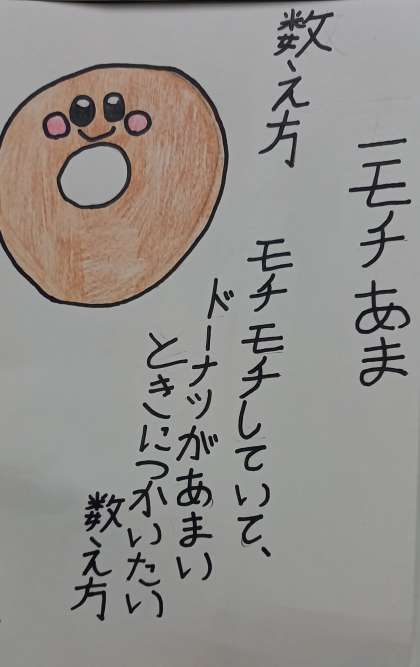 一モチあま
数え方
モチモチしていて、
ドーナツがあまい
ときにつかいたい
数え方